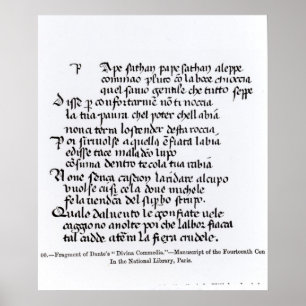 P Ape sathan pape sathan aleppe
comincio pluto cõ la boce chioccia
quel savio gentile che tutto seppe
Disse p confortarme nõ ti noccia
la tua paura che poter chell abia
non ci terra lo scender desta roccia
Poi si rivolse a quella ẽfiata labia
e disse tace maladeto lupo
cõsuma dentro te cõ la tua rabia
None senza casion landare al cupo
vuolse cusi cela dove michele
fe la vendeta del supbo strupo
Quale dal vento le gonfiate vele
caggiono avolte poi che lalbor fiacca
tal cadde a terra la fiera crudele.
00.—Fragment of Dante's "Divina Commedia."—Manuscript of the Fourteenth Cen
In the National Library, Paris.